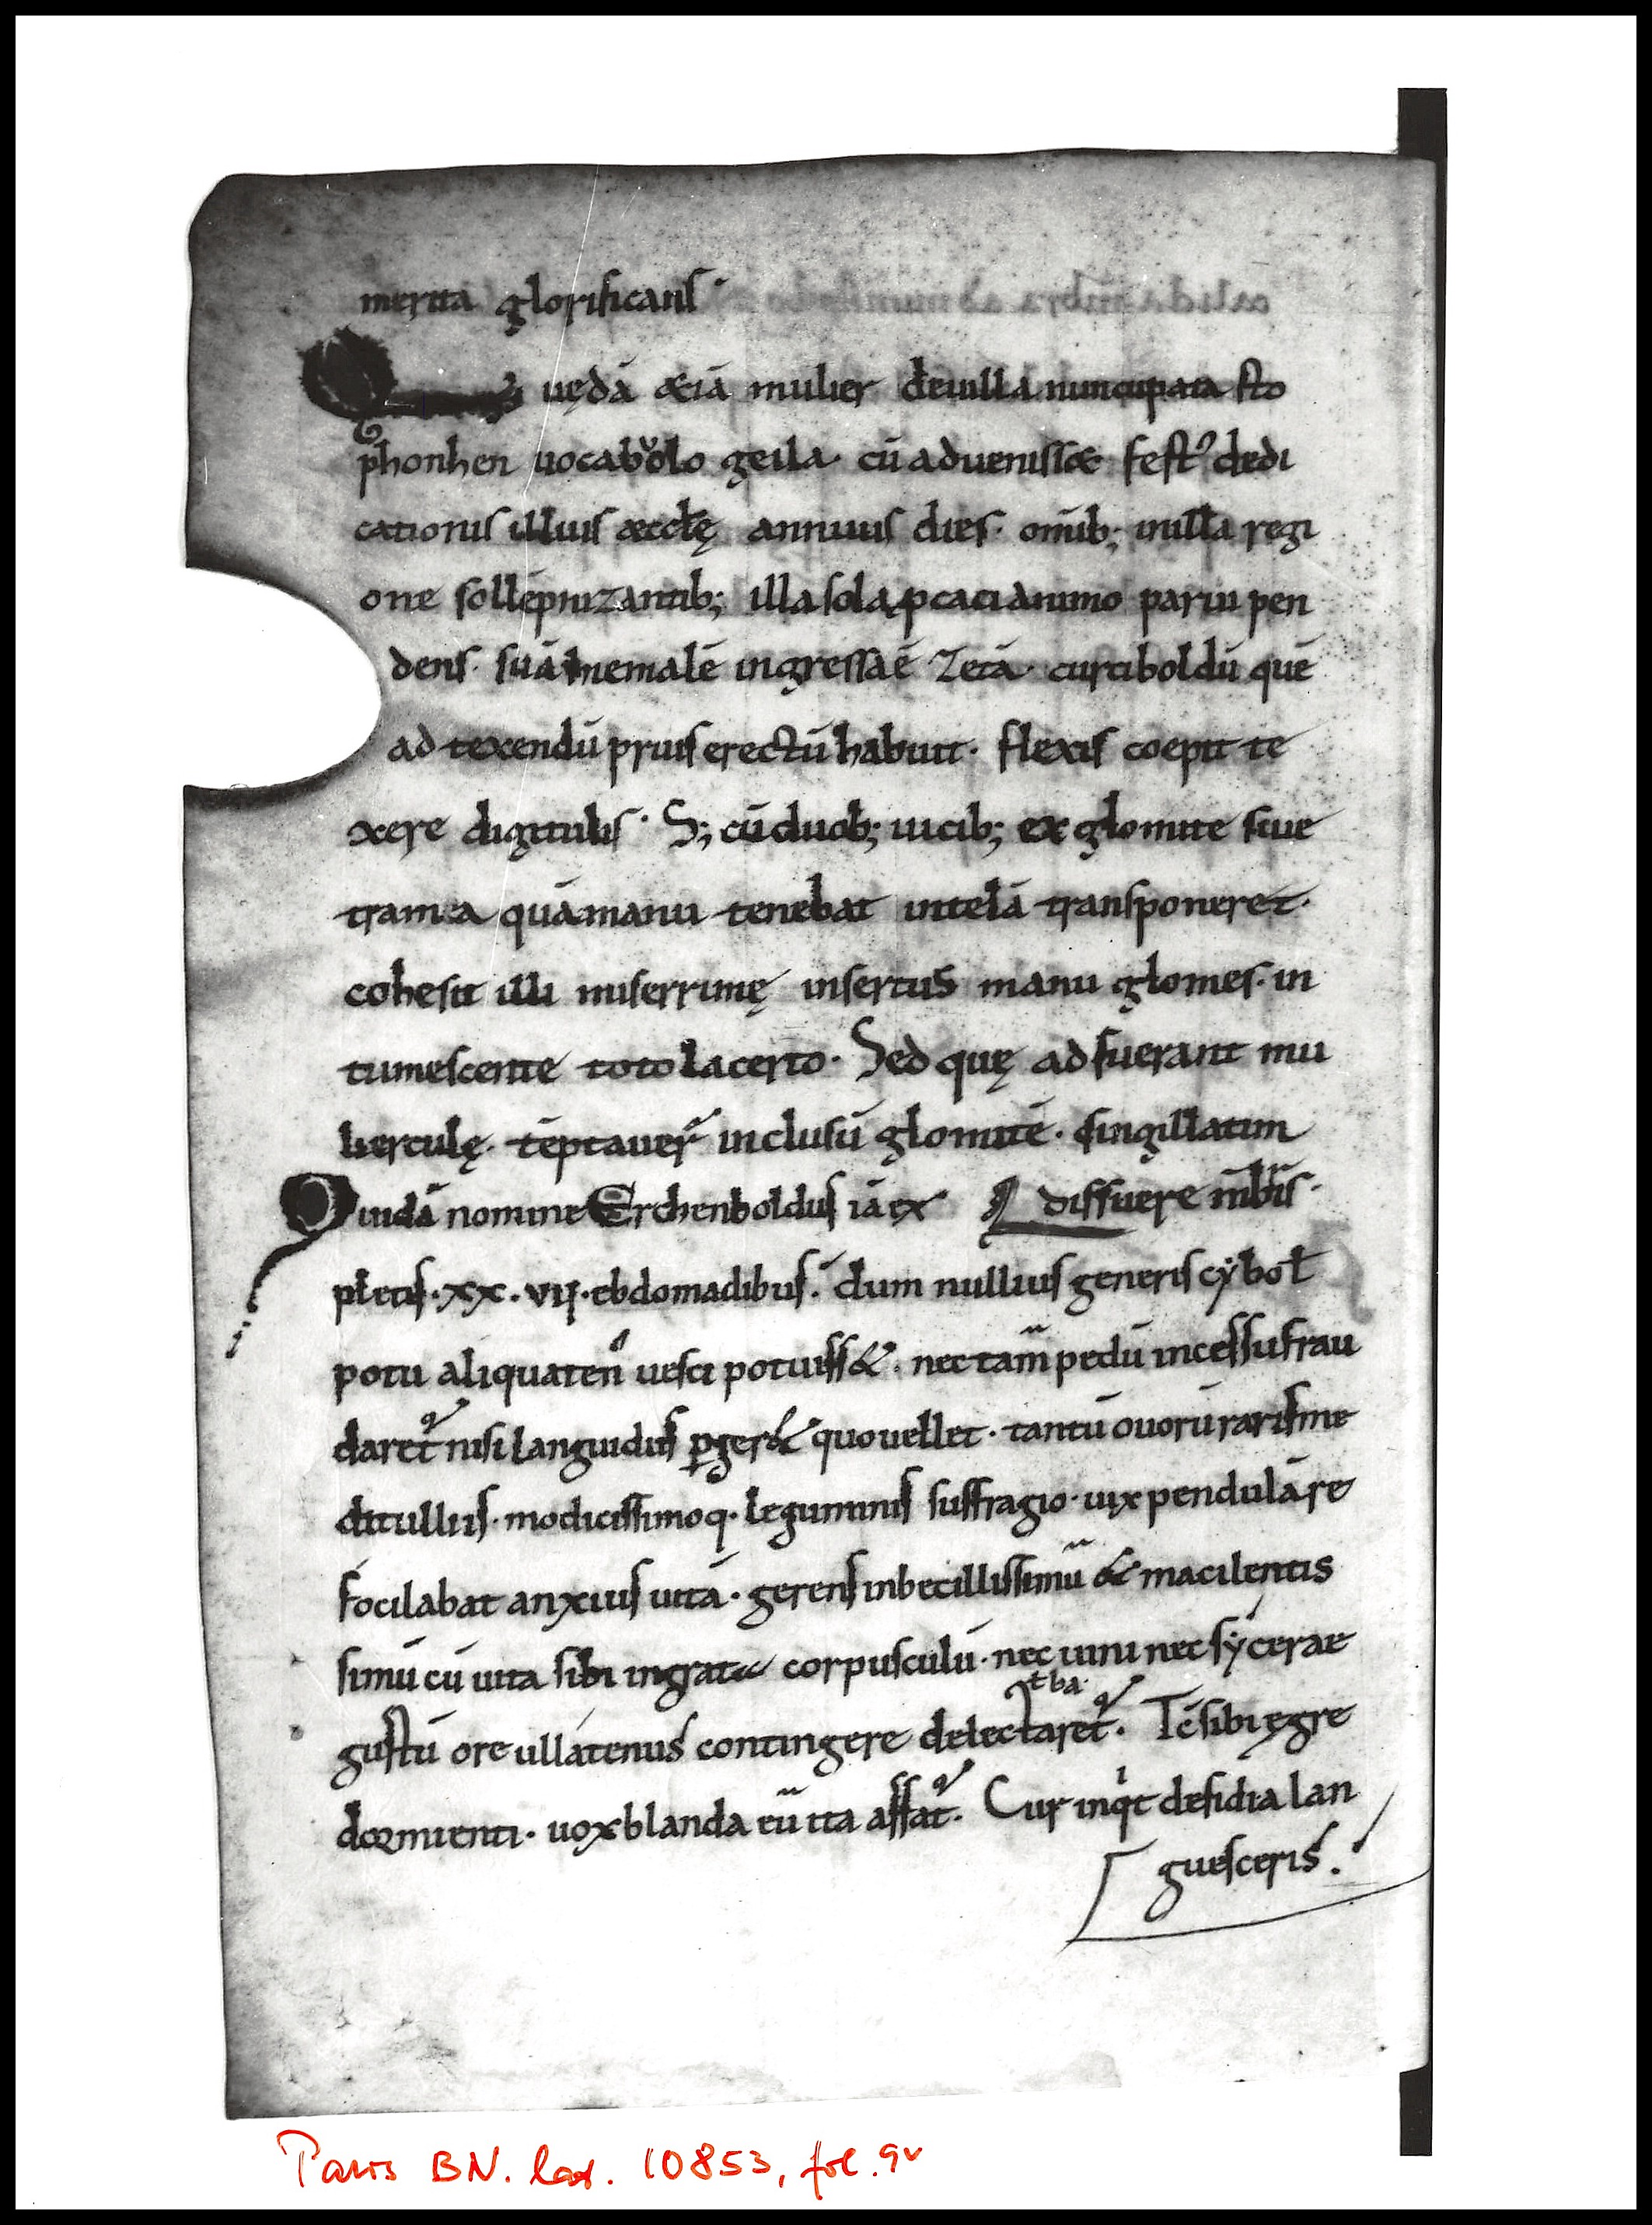 merita glorificans·
Quędā & iā mulier deuilla nuncupata sto
phonhen uocabolo geila· cū aduenisset fest᾽ dedi
cationis illius æcclę annuus dies· omīb; inilla regi
one sollēpnizantib; illa sola ꝓcaci animo parui pen
dens· suā hiemalē ingressa ē zetā· curtiboldū quē
ad texendū prius erectū habuit· flexis coepit te
xere digitulis· S; cū duob; uicib; ex glomite siue
trama quā manu tenebat intelā transponeret·
cohesit illi miserrimę insertus manu glomes· in
tumescente toto lacerto· Sed quę adfuerant mu
lierculę· tēptauer̄ inclusū glomitē· singillatim
Quidā nomine Erchenboldus iā ex diffuere mēbris·
pletis· xx· vij· ebdomadibus· dum nullius generis cybo ł
potu aliquaten᾽ uesci potuiss&· nec tam̄ pedū incessu frau
daret᷒ nisi languidus ꝑger& quo uellet· tantū ouorū rarissime
ditulliis· modicissimoq· leguminis suffragio· uix pendulā re
focilabat anxius uitā· gerens inbecillissimū & macilentis
simū cū uita sibi ingrata corpusculū· nec uini nec sycerae
tba·
gustū ore ullatenus contingere delectaret᷒· Tc̄ sibi ęgre
dormienti· uox blanda eū ita affat᷒· Cur inqͥt desidia lan
guesceris·
Paris BN. lat. 10853, fol. 9v